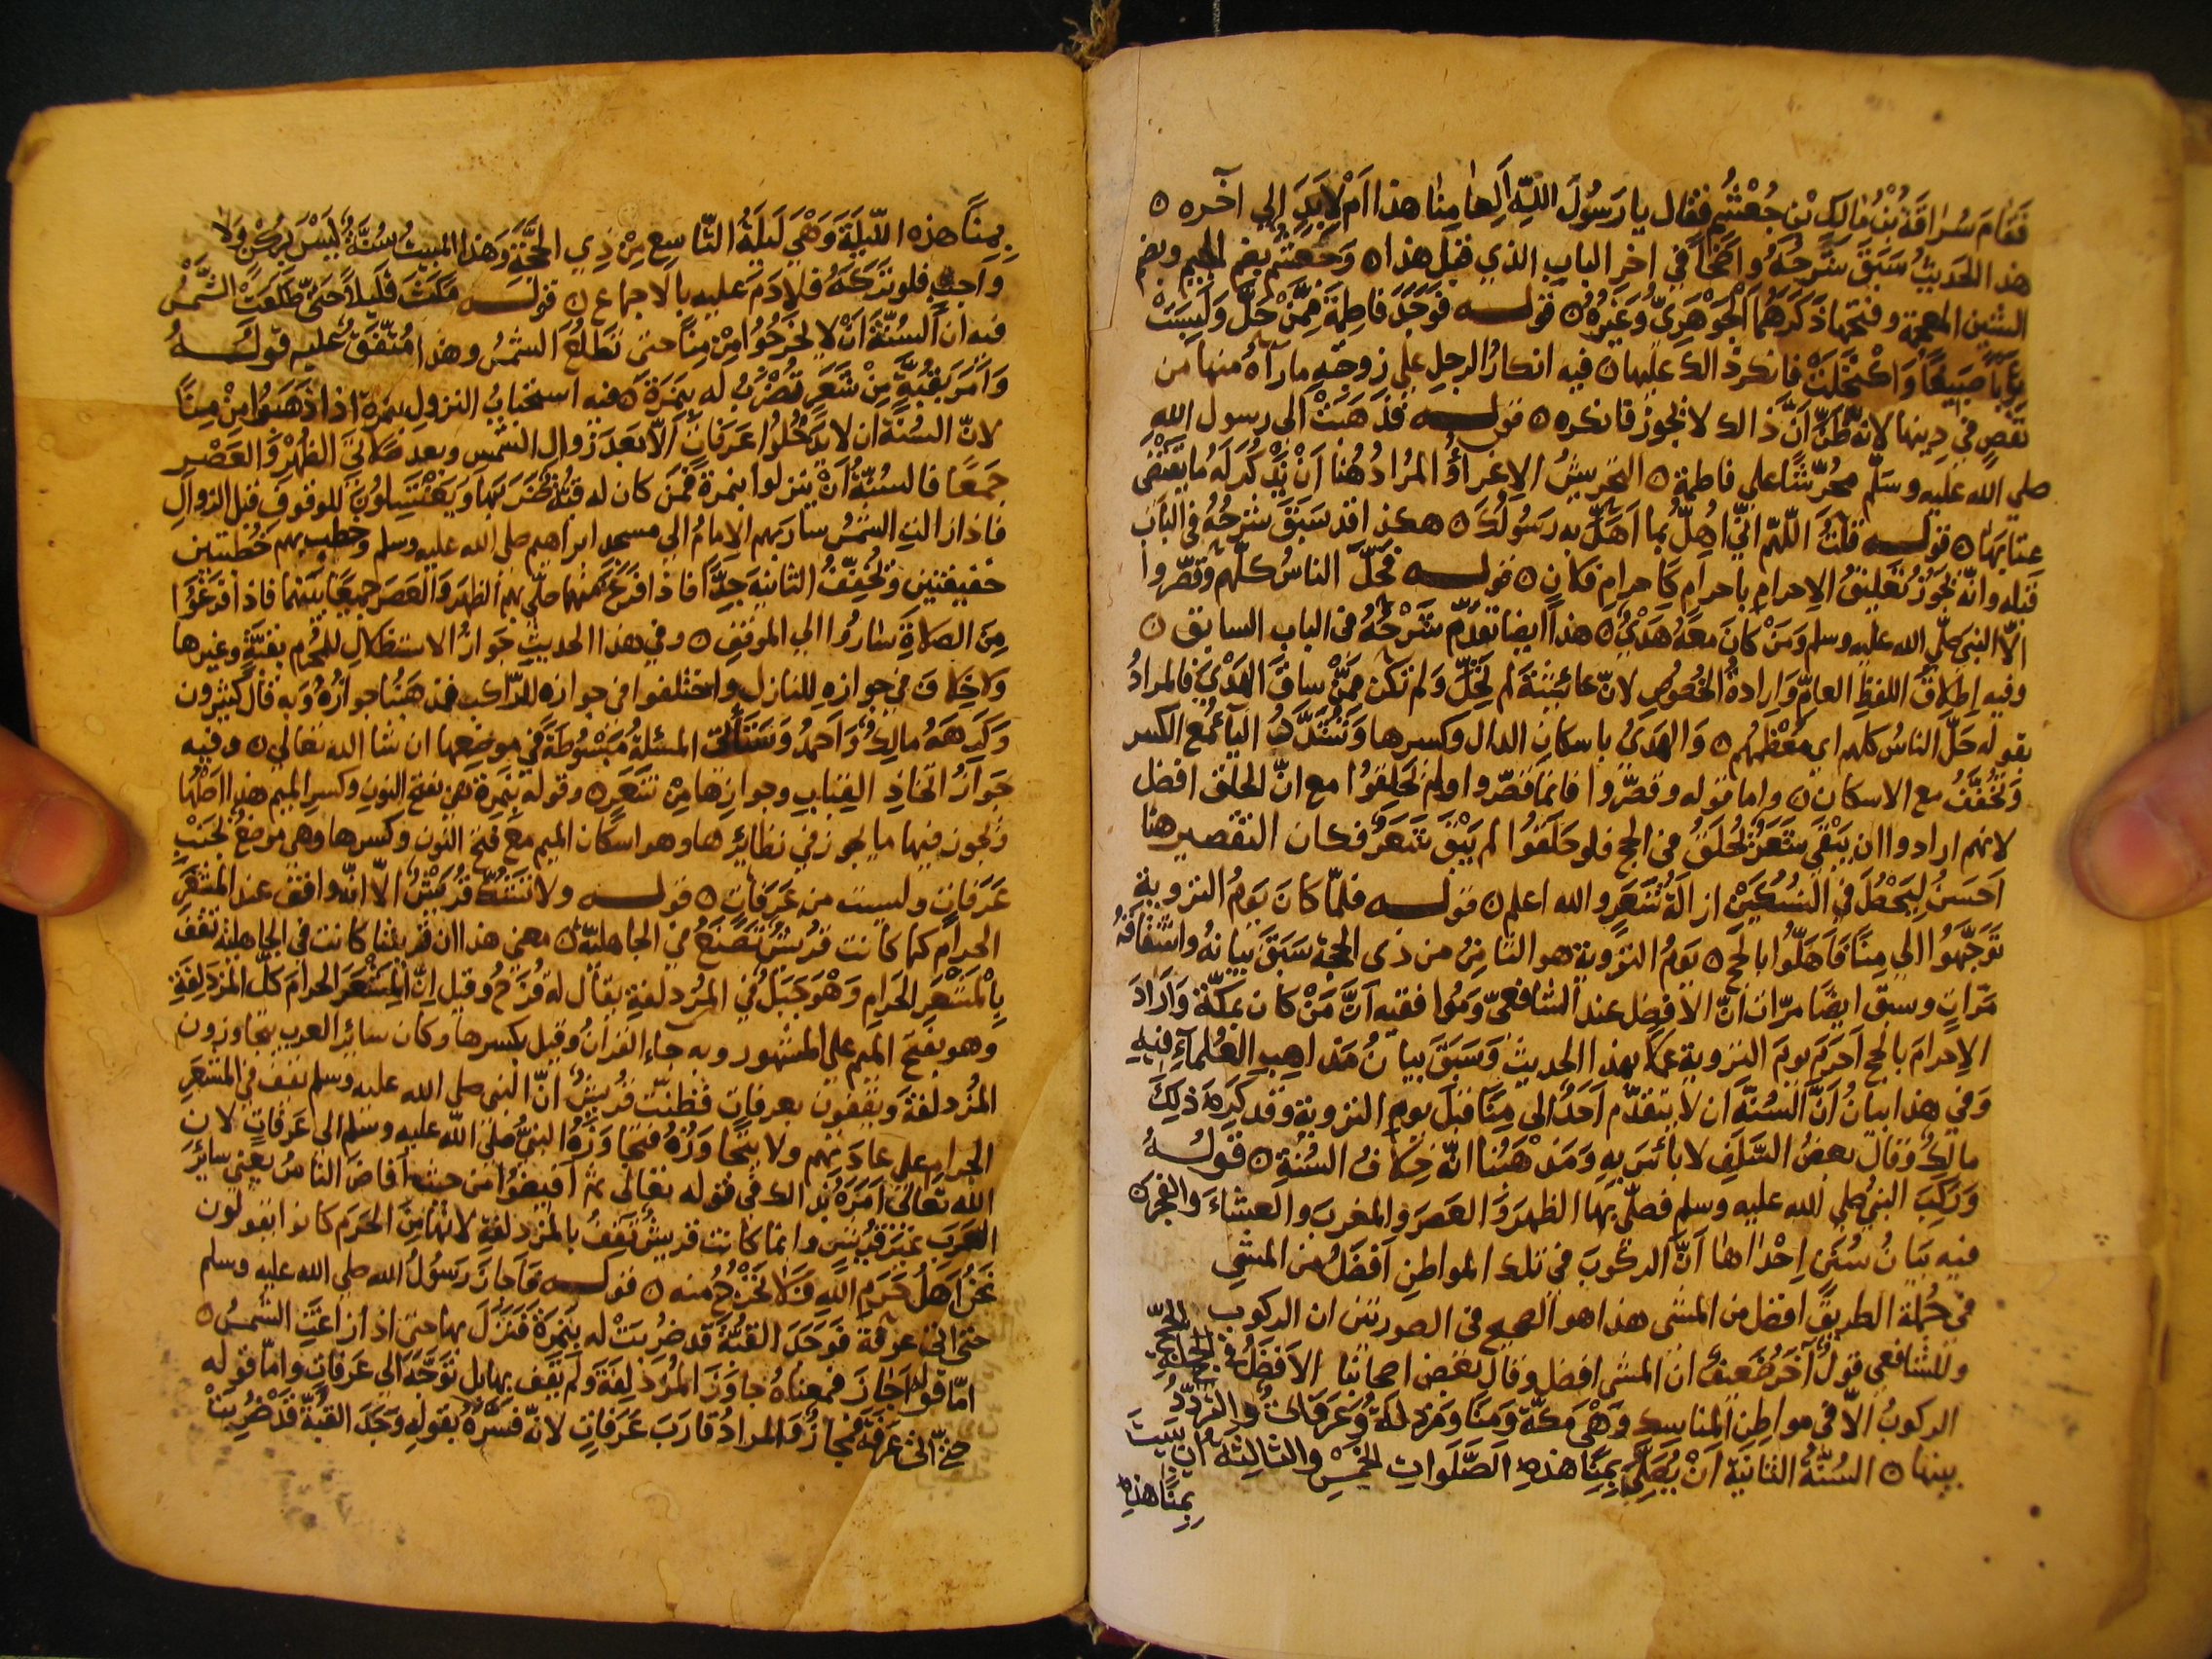 فقام سراقة بن مالك بن جعشم فقال يا رسول الله ألعامنا هذا ام لابد الي آخره ٥
هذا الحديث سبق شرحه واضحا في اخر الباب الذي قبل هذا ٥ وجعشم بضم الجيم وبضم
الشين المعجمة وفتحها ذكرهما الجوهري وغيره ٥ قوله فوجد فاطمة ممن حل ولبست
ثيابا صبيغا واكتحلت فانكر ذالك عليها ٥ فيه انكار الرجل علي زوجته ما رآه منها من
نقص في دينها لانه ظن ان ذالك لا يجوز فانكره ٥ قوله فذهبت الى رسول الله
صلي الله عليه وسلم محرشا علي فاطمة ٥ التحريش الاغرآء والمراد هنا ان يذكر له ما يقتضى
عتابها ٥ قوله قلت اللهم اني اهل بما اهل به رسولك ٥ هكذا قد سبق شرحه في الباب
قبله وانه يجوز تعليق الاحرام باحرام كاحرام فلان ٥ قوله فحل الناس كلهم وقصروا
الا النبي صلي الله عليه وسلم ومن كان معه هدي ٥ هذا ايضا تقدم شرحه في الباب السابق ٥
وفيه اطلاق اللفظ العام وارادة الخصوص لان عائشة لم تحل ولم تكن ممن ساق الهدي فالمراد
بقوله حل الناس كلهم اي معظمهم ٥ والهدي باسكان الدال وكسرها وتشدد اليآء مع الكسر
وتخفف مع الاسكان ٥ واما قوله وقصروا فانما قصروا ولم يحلقوا مع ان الحلق افضل
لانهم ارادوا ان يبقي شعر يحلق في الحج فلو حلقوا لم يبق شعر فكان التقصير هنا
احسن ليحصل في النسكين ازالة شعر والله اعلم ٥ قوله فلما كان يوم التروية
توجهوا الي منا فاهلوا بالحج ٥ يوم التروية هو الثامن من ذي الحجة سبق بيانه واشتقاقه
مرات وسبق ايضا مرات ان الافضل عند الشافعي وموافقيه ان من كان بمكة واراد
الاحرام بالحج احرم يوم التروية عملا بهذا الحديث وسبق بيان مذاهب العلمآء فيه
وفي هذا بيان ان السنة ان لا يتقدم احد الى منا قبل يوم التروية وقد كره ذلك
مالك وقال بعض السلف لا بأس به ومذهبنا انه خلاف السنة ٥ قوله
وركب النبي صلي الله عليه وسلم فصلي بها الظهر والعصر والمغرب والعشاء والفجر ٥
فيه بيان سنن احداها ان الركوب في تلك المواطن افضل من المشي
في جملة الطريق افضل من المشي هذا هو الصحيح في الصورتين ان الركوب
وللشافعي قول آخر ضعيف ان المشي افضل وقال بعض اصحابنا الافضل في جملة الحج
الركوب الا في مواطن المناسك وهي مكة ومنا ومزدلفة وعرفات والتردد
بينها ٥ السنة الثانية ان يصلي بمنا هذه الصلوات الخمس والثالثة ان يبيت
بمنا هذه
بمنا هذه الليلة وهي ليلة التاسع من ذي الحجة وهذا المبيت سنة ليس بركن ولا
واجب فلو تركه فلا دم عليه بالاجماع ٥ قوله مكث قليلا حتى طلعت الشمس
فيه ان السنة ان لا يخرجوا من منا حتى تطلع الشمس وهذا متفق عليه قوله
وامر بقبة من شعر تضرب له بنمرة ٥ فيه استحباب النزول بنمرة اذا ذهبوا من منا
لان السنة ان لا يدخلوا عرفات الا بعد زوال الشمس وبعد صلاتي الظهر والعصر
جمعا فالسنة ان ينزلوا بنمرة فمن كان له قبة ضربها ويغتسلون للوقوف قبل الزوال
فاذا زالت الشمس سار بهم الامام الي مسجد ابراهيم صلي الله عليه وسلم وخطب بهم خطبتين
خفيفتين وتخفف الثانية جدا فاذا فرغ منهما صلي بهم الظهر والعصر جمعا بينهما فاذا فرغوا
من الصلاة ساروا الي الموقف ٥ وفي هذا الحديث جواز الاستظلال للمحرم بقبة وغيرها
ولا خلاف في جوازه للنازل واختلفوا في جوازه للراكب فمذهبنا جوازه وبه قال كثيرون
وكرهه مالك واحمد وستأتي المسئلة مبسوطة في موضعها ان شا الله تعالي ٥ وفيه
جواز اتخاذ القباب وجوازها من شعر ٥ وقوله بنمرة هي بفتح النون وكسر الميم هذا اصلها
ويجوز فيها ما يجوز في نظائرها وهو اسكان الميم مع فتح النون وكسرها وهي موضع بجنب
عرفات وليست من عرفات ٥ قوله ولا تشك قريش الا انه واقف عند المشعر
الحرام كما كانت قريش تصنع في الجاهلية ٥ معني هذا ان قريشا كانت في الجاهلية تقف
بالمشعر الحرام وهو جبل في المزدلفة يقال له قزح وقيل ان المشعر الحرام كل المزدلفة
وهو بفتح الميم علي المشهور وبه جاء القران وقيل بكسرها وكان سائر العرب يتجاوزون
المزدلفة ويقفون بعرفات فظنت قريش ان النبي صلي الله عليه وسلم يقف في المشعر
الحرام علي عادتهم ولا يتجاوزه فتجاوزه النبي صلي الله عليه وسلم الي عرفات لان
الله تعالى امره بذالك في قوله تعالي ثم افيضوا من حيث افاض الناس يعني سائر
العرب غير قريش وانما كانت قريش تقف بالمزدلفة لانها من الحرم كانوا يقولون
نحن اهل حرم الله فلا نخرج منه ٥ قوله فاجاز رسول الله صلي الله عليه وسلم
حتى اتى عرفة فوجد القبة قد ضربت له بنمرة فنزل بها حتى اذا زاغت الشمس ٥
اما قوله اجاز فمعناه جاوز المزدلفة ولم يقف بها بل توجه الى عرفات واما قوله
حتى اتى عرفة فمجاز والمراد قارب عرفات لانه فسره بقوله وجد القبة قد ضربت